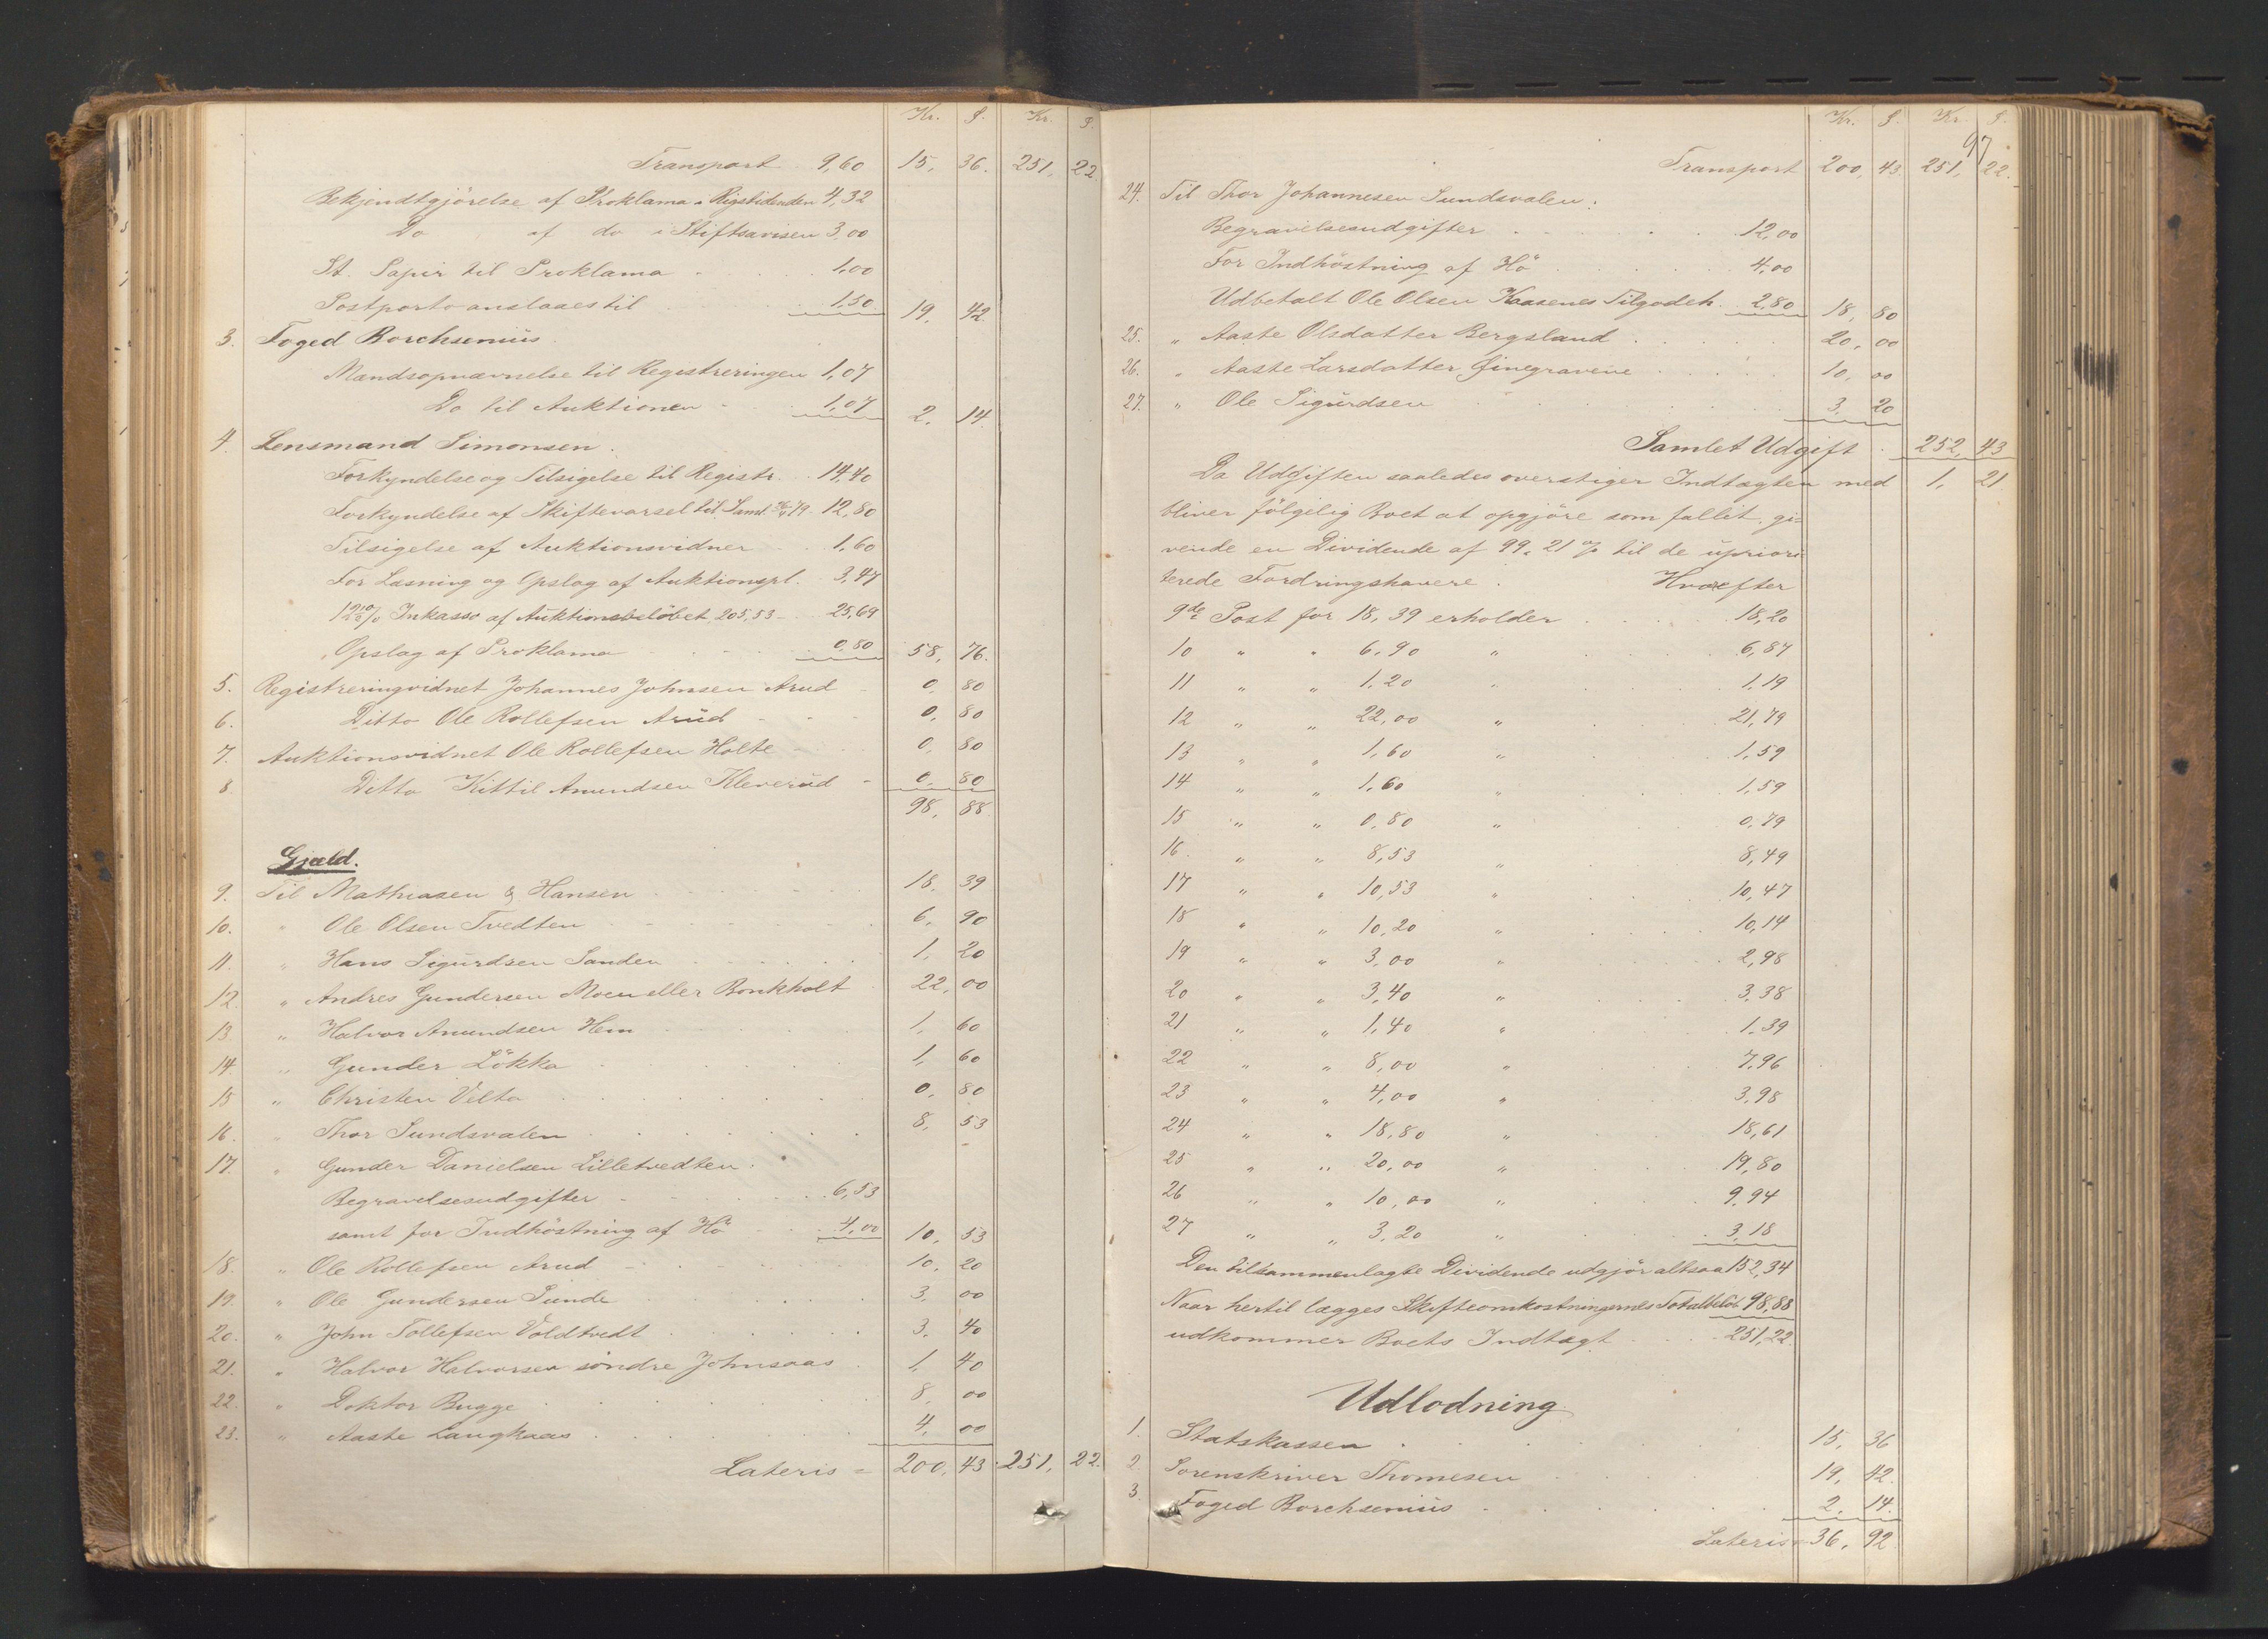 Kr. | S. | Kr. | S.
Transport . 9,60 | 15, | 36. | 251, | 22.
Bekjendtgjörelse af Proklama i Rigstidenden 4,32
Do af do i Stiftsavisen 3,00
St. Papir til Proklama 1,00
Postporto anslaaes til 1,50 | 19, | 42.
3. Foged Borchsenius.
Mandsopnævnelse til Registreringen 1,07
Do til Auktionen 1,07 | 2, | 14.
4. Lensmand Simonsen.
Forkyndelse og Tilsigelse til Registr. 14,40
Forkyndelse af Skiftevarsel til Saml. 79. 12,80
Tilsigelse af Auktionsvidner 1,60
For Læsning og Opslag af Auktionspl. 3,47
12½% Inkasso af Auktionsbelöbet, 205,53 25,69
Opslag af Proklama 0,80 | 58, | 76.
5. Registreringvidnet Johannes Johnsen Arud 0, | 80
6. Ditto Ole Rollefsen Arud 0, | 80
7. Auktionsvidnet Ole Rollefsen Holte 0, | 80
8. Ditto Kittil Amundsen Kleverud 0, | 80
98, | 88
Gjæld.
9. Til Mathiasen & Hansen 18, | 39
10. " Ole Olsen Tvedten 6, | 90
11. " Hans Sigurdsen Sanden 1, | 20
12. " Andres Gundersen Moen eller Bonkholt 22, | 00
13. " Halvor Amundsen Hem 1, | 60
14. " Gunder Lökka 1, | 60
15 " Christen Velta 0, | 80
16. " Thor Sundsvalen 8, | 53
17. " Gunder Danielsen Lilletvedten.
Begravelsesudgifter 6,53
samt for Indhöstning af Hö 4,00 | 10, | 53
18. " Ole Rollefsen Arud 10, | 20
19. " Ole Gundersen Sunde 3, | 00
20. " John Tollefsen Voldtvedt 3, | 40
21. " Halvor Halvorsen söndre Johnsaas 1, | 40
22. " Doktor Bugge 8, | 00
23. " Aaste Langkaas 4, | 00
Lateris = 200, | 43 | 251, | 22.
97
Kr. | S. | Kr. | S.
Transport 200, | 43 | 251, | 22.
24. Til Thor Johannesen Sundsvalen:
Begravelsesudgifter 12,00
For Indhöstning af Hö 4,00
Udbetalt Ole Olsen Kaasenes Tilgodeh. 2,80 | 18, | 80
25. " Aaste Olsdatter Bergsland 20, | 00
26. " Aaste Larsdatter 10, | 00
27. " Ole Sigurdsen 3, | 20
Samlet Udgift 252, | 43
Da Udgiften saaledes overstiger Indtægten med 1, | 21
bliver fölgelig Boet at opgjöre som fallit, gi-
vende en Dividende af 99,21 % til de upriori-
terede Fordringshavere. Hvorefter
9de Post for 18,39 erholder 18,20
10 " " 6,90 " 6,87
11 " " 1,20 " 1,19
12 " " 22,00 " 21,79
13 " " 1,60 " 1,59
14 " " 1,60 " 1,59
15 " " 0,80 " 0,79
16. " " 8,53 " 8,49
17 " " 10,53 " 10,47
18 " " 10,20 " 10,14
19 " " 3,00 " 2,98
20 " " 3,40 " 3,38
21 " " 1,40 " 1,39
22 " " 8,00 " 7,96
23 " " 4,00 " 3,98
24 " " 18,80 " 18,61
25 " " 20,00 " 19,80
26 " " 10,00 " 9,94
27 " " 3,20 " 3,18
Den tilsammenlagte Dividende udgjör altsaa 152,34
Naar hertil lægges Skifteomkostningernes Totalbelöb 98,88
udkommer Boets Indtægt 251,22
Udlodning
1. Statskassen 15, | 36
2. Sorenskriver Thomesen 19, | 42.
3. Foged Borchsenius 2, | 14.
Lateris 36, | 92